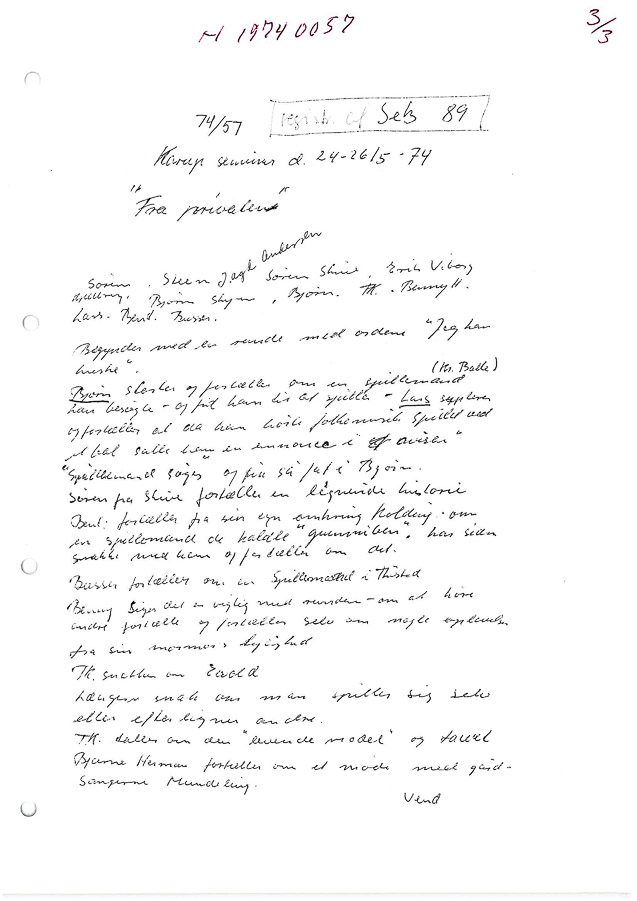 M 1974 0057
3/3
74/57
registr. af Seb 89
Karup seminar d. 24-26/5 -74
"Fra privaten"
Andersen
Søren, Steen Jagt Søren Skive, Erik Viborg
Bjørn, Bjørn. TK. Benny H.
Lars. Bent. Basser.
Begynder med en runde med ordene "Jeg kan
huske".
(Kr. Balle)
Bjørn starter og fortæller om en spillemand
han besøgte - og fik ham til at spille - Lars supplerer
og fortæller at da han hørte folkemusik spillet ved
et bal satte han en annonce i avisen
"Spillemand søges og fik så fat i Bjørn.
Søren fra Skive fortæller en lignende historie
Bent: fortæller fra sin egn omkring Kolding - om
en spillemand de kaldte han siden
snakke med ham og fortæller om det.
Basser fortæller om en Spillemand i Thisted
Benny siger det er vigtig med runden - om at høre
andre fortælle og fortæller selv om nogle oplevelser
fra sin mormors lejlighed
TK. snakker om Evald
Længere snak om man spiller sig selv
eller efterligner andre.
T.K. taler om den "levende model" og
Bjarne Herman fortæller om et møde med gård-
Sangerne Mundeling.
Vend